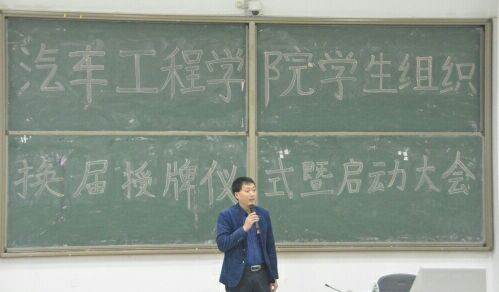 汽车工程学院学生组织
换届授牌仪式暨启动大会